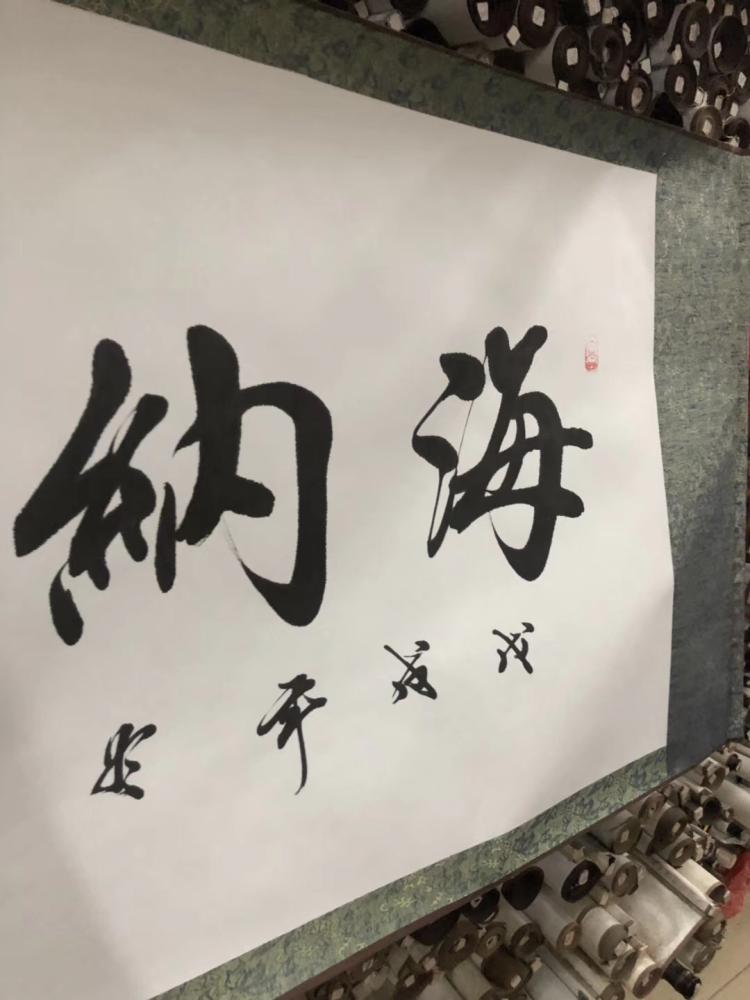 海納
戊戌年